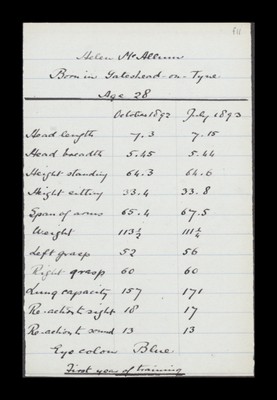 Helen McAllum
Born in Gateshead-on-Tyne
Age 28
October 1892 July 1893
Head length 7.3 7.15
Head breadth 5.45 5.44
Height standing 64.3 64.6
Height sitting 33.4 33.8
Span of arms 65.4 67.5
Weight 113½
Left grasp 52 56
Right grasp 60 60
Lung capacity 157 171
Re-action to sight 18 17
Re-action to sound 13 13
Eye colour Blue
First year of training